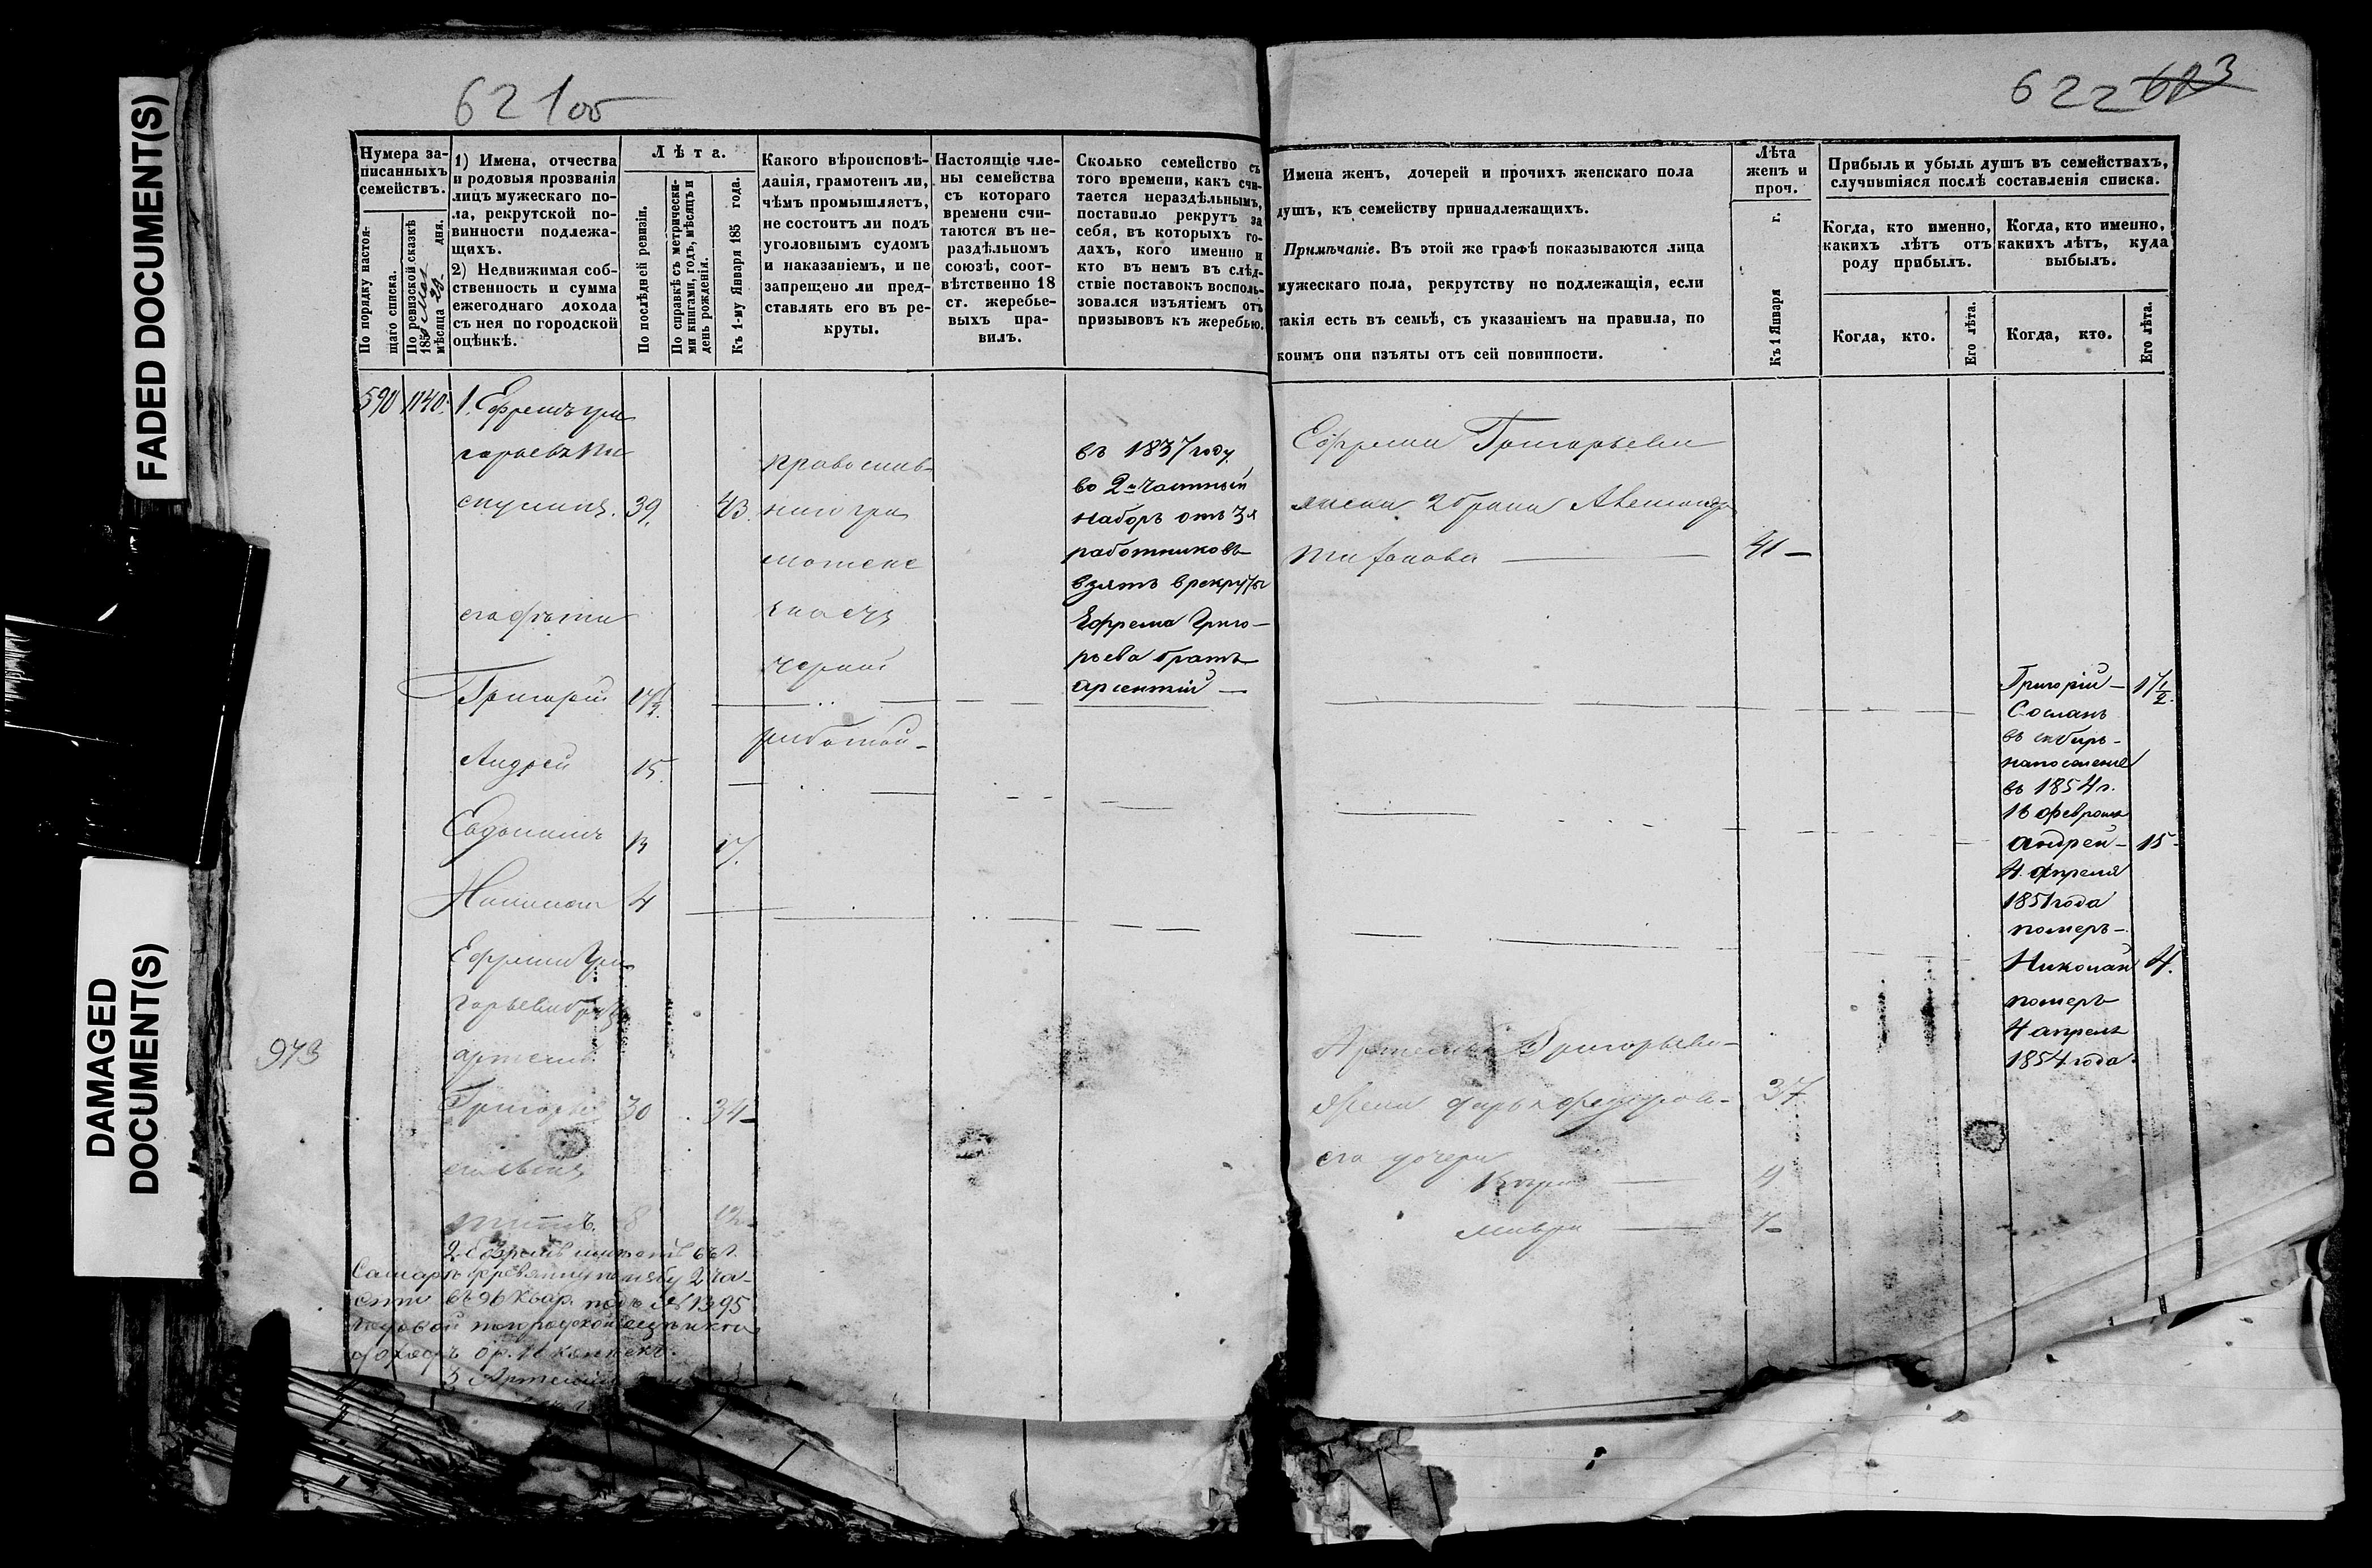 FADED DOCUMENT(S)
DAMAGED
DOCUMENT(S)
621об
622 613
973
Нумера за-
писанныхъ
семействъ.
По порядку настоя-
щаго списка.
По ревизской сказкѣ
185 мѣсяца дня.
1) Имена, отчества
и родовыя прозванія
лицъ мужескаго по-
ла, рекрутской по-
винности подлежа-
щихъ.
2) Недвижимая соб-
ственность и сумма
ежегоднаго дохода
съ нея по городской
оцѣнкѣ.
Лѣта.
По послѣдней ревизіи.
По справкѣ съ метрически-
ми книгами, годъ, мѣсяцъ и
день рожденія.
Къ 1-му Января 185 года.
Какого вѣроисповѣ-
данія, грамотенъ ли,
чѣмъ промышляетъ,
не состоитъ ли подъ
уголовнымъ судомъ
и наказаніемъ, и не
запрещено ли пред-
ставлять его въ ре-
круты.
Настоящіе чле-
ны семейства
съ котораго
времени счи-
таются въ не-
раздѣльномъ
союзѣ, соот-
вѣтственно 18
ст. жеребье-
выхъ пра-
вилъ.
Сколько семейство съ
того времени, какъ счи-
тается нераздѣльнымъ,
поставило рекрутъ за
себя, въ которыхъ го-
дахъ, кого именно и
кто въ немъ въ слѣд-
ствіе поставокъ восполь-
зовался изъятіемъ отъ
призывовъ къ жеребью.
Имена женъ, дочерей и прочихъ женскаго пола
душъ, къ семейству принадлежащихъ.
Примѣчаніе. Въ этой же графѣ показываются лица
мужескаго пола, рекрутству не подлежащія, если
такія есть въ семьѣ, съ указаніемъ на правила, по
коимъ они изъяты отъ сей повинности.
Лѣта
женъ и
проч.
Къ 1 Января г.
Прибыль и убыль душъ въ семействахъ,
случившіяся послѣ составленія списка.
Когда, кто именно,
какихъ лѣтъ отъ
роду прибылъ.
Когда, кто именно,
какихъ лѣтъ, куда
выбылъ.
Когда, кто.
Его лѣта.
Когда, кто.
Его лѣта.
590 1140. 1. Ефремъ Гри
горьевъ
39. 43.
его дѣти
Григорій 17½
Андрей 15.
Евдокимъ 13 17.
Николай 4
Ефрема Гри
горьева братъ
Артемій
Григорьевъ 30 34
его сынъ
Титъ. 8 12
православ
наго гра
мотене
знаетъ
черной
работой
въ 1837 году
во 2й частный
наборъ отъ 3х
работниковъ
взятъ в рекруты
Ефрема Григо-
рьева братъ
арсентій
Ефрема Григорьева
жена 2 брака Александра
Тифонова 41
Артемія Григорьева
жена Дарья Федорова 37
его дочери
9
Мавра 7
Григорій 17½
Сосланъ
въ сибирь
на поселеніе
въ 1854 г.
16 февраля
Андрей 15
4 апреля
1851 года
померъ
Николай 4.
померъ
4 апреля
1854 года.
Самаръ деревянную избу 2 ча-
сти въ 96 квар. подъ № 1395
доходъ 0р. 11 копѣекъ.
3 Артемій